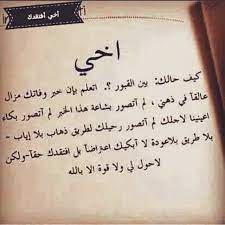 أخي أفتقدك
اخي
كيف حالك: بين القبور ؟. اتعلم بإن خبر وفاتك مزال
عالقآ في ذهني ، لم أتصور بشاعة هذا الخبر لم أتصور بكاء
اعيننا لاجلك لم أتصور رحيلك لطريق ذهاب بلا إياب -
بلا طريق بلاعودة لا أبكيك اعتراضآ بل افتقدك حقآ-ولكن
لاحول لي ولا قوة الا بالله